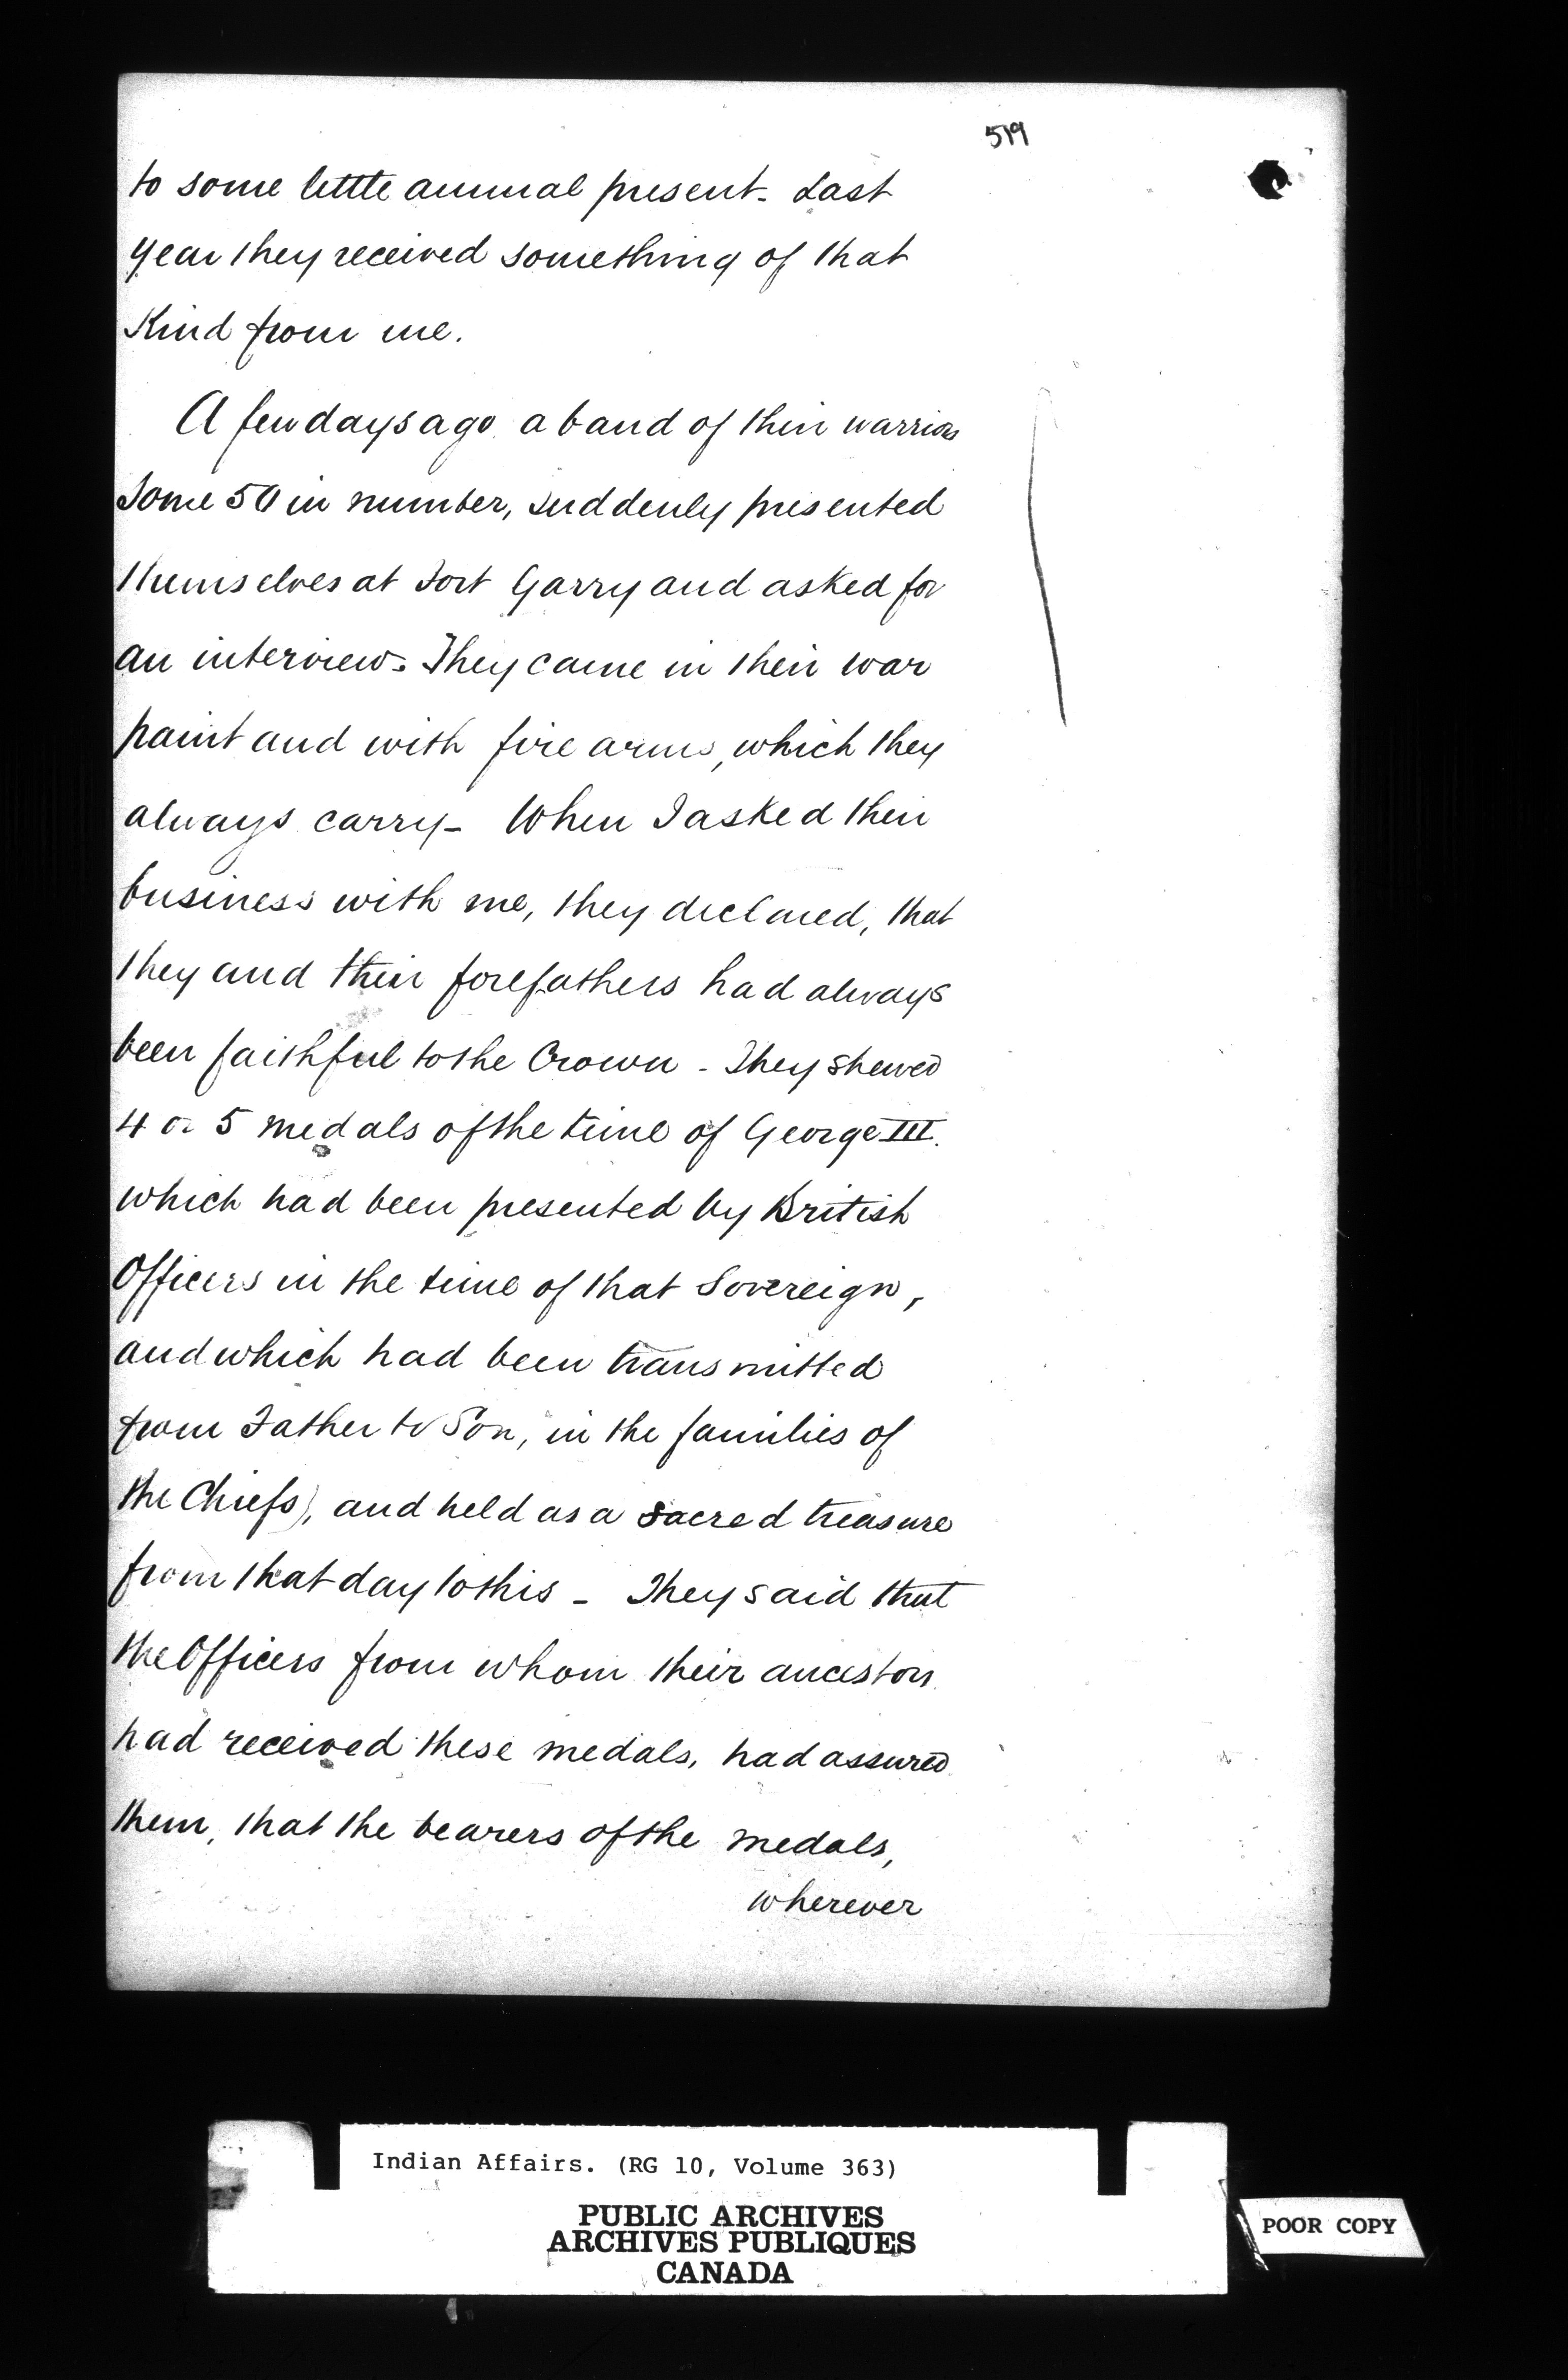 519
to some little annual present - Last
year they received something of that
Kind from me.
A few days ago a band of their warriors
Some 50 in number, suddenly presented
themselves at Fort Garry and asked for
an interview. They came in their war
paint and with fire arms, which they
always carry - When I asked their
business with me, they declared, that
they and their forefathers had always
been faithful to the Crown - They shewed
4 or 5 medals of the time of George III.
which had been presented by British
Officers in the time of that Sovereign,
and which had been transmitted
from Father to Son, in the families of
the Chiefs), and held as a sacred treasure
from that day to this - They said that
the Officers from whom their ancestors
had received these medals, had assured
them, that the bearers of the medals,
wherever
Indian Affairs. (RG 10, Volume 363)
PUBLIC ARCHIVES
ARCHIVES PUBLIQUES
CANADA
POOR COPY